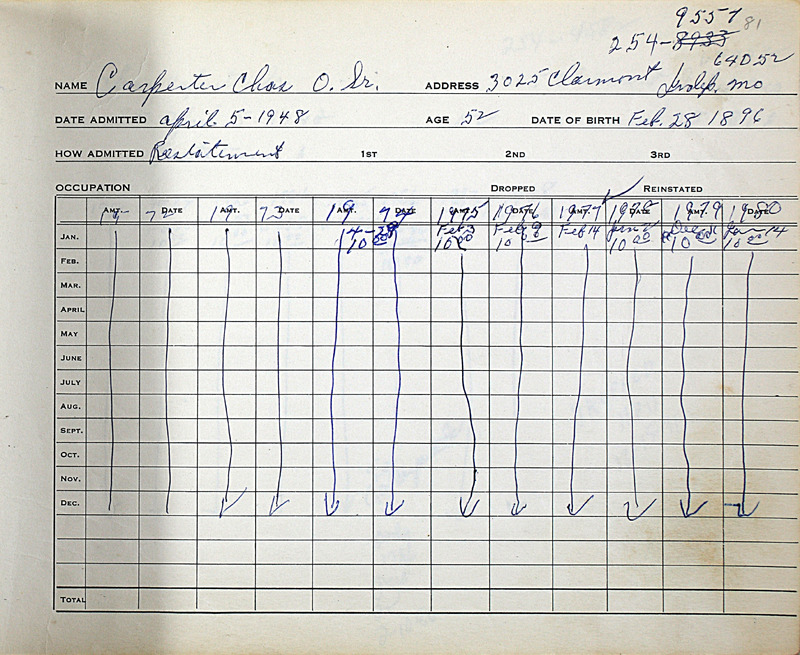 9557 81
254-8933
64052
NAME Carpenter Chas O. Sr. ADDRESS 3025 Clarmont Indep. Mo
DATE ADMITTED April 5-1948 AGE 52 DATE OF BIRTH Feb. 28 1896
HOW ADMITTED Restatement 1ST 2ND 3RD
OCCUPATION DROPPED REINSTATED
AMT. DATE AMT. DATE AMT. DATE AMT. DATE AMT. DATE AMT. DATE
19 72 19 73 19 74 1975 1976 1977 1978 1979 1980
JAN. Feb 3 Feb 9 Feb 14 Jan 14
10 00 10 00 10 00 10 00 10 00 10 00
FEB.
MAR.
APRIL
MAY
JUNE
JULY
AUG.
SEPT.
OCT.
NOV.
DEC.
TOTAL